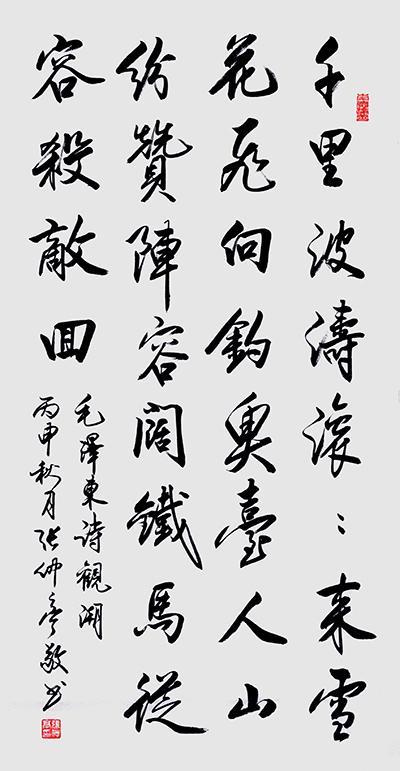 千里波濤滾〻来雪
花飛向釣魚臺人山
紛贊陣容闊鐵馬從
容殺敵回
毛澤東詩觀潮
丙申秋月张仲亭敬书